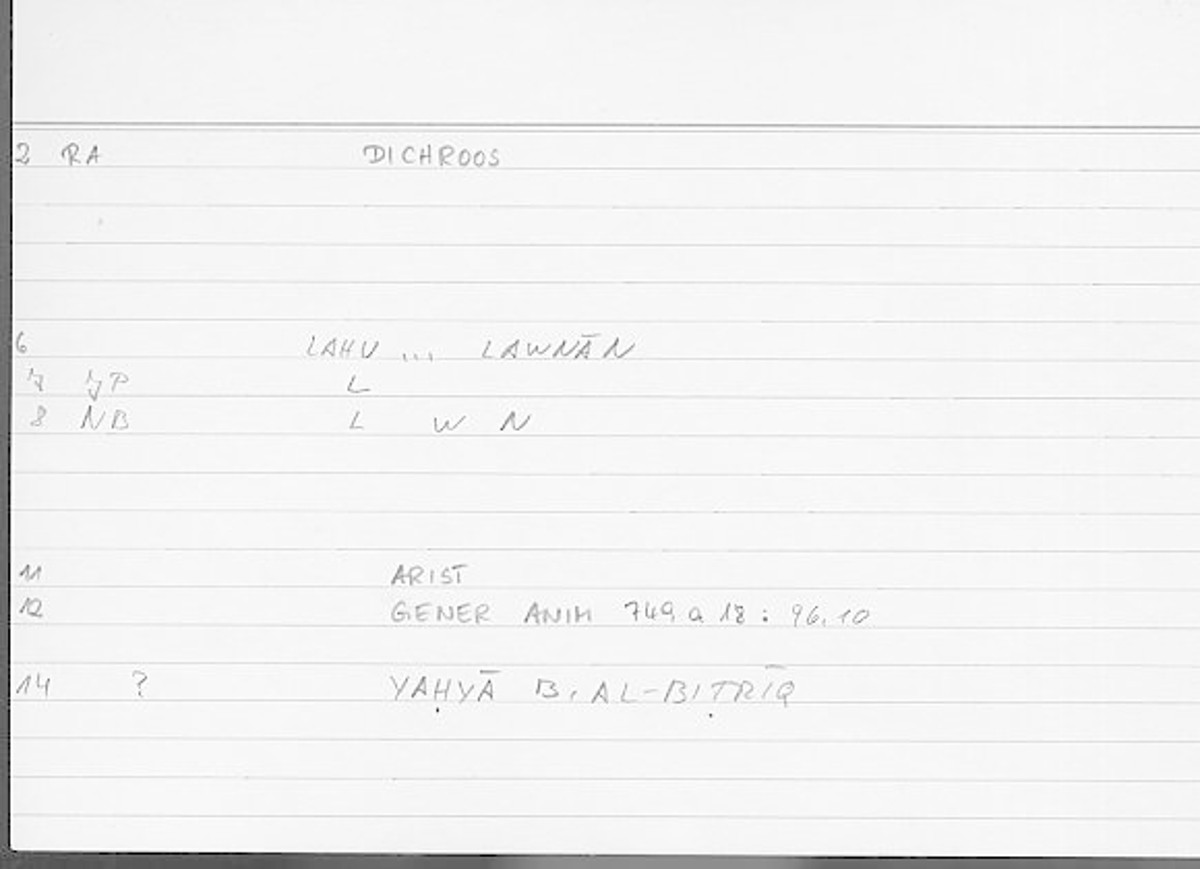 2 RA DICHROOS
6 LAHU ... LAWNĀN
7 JP L
8 NB L W N
11 ARIST
12 GENER ANIM 749 a 18 : 96.10
14 ? YAḤYĀ B. AL-BIṬRĪQ